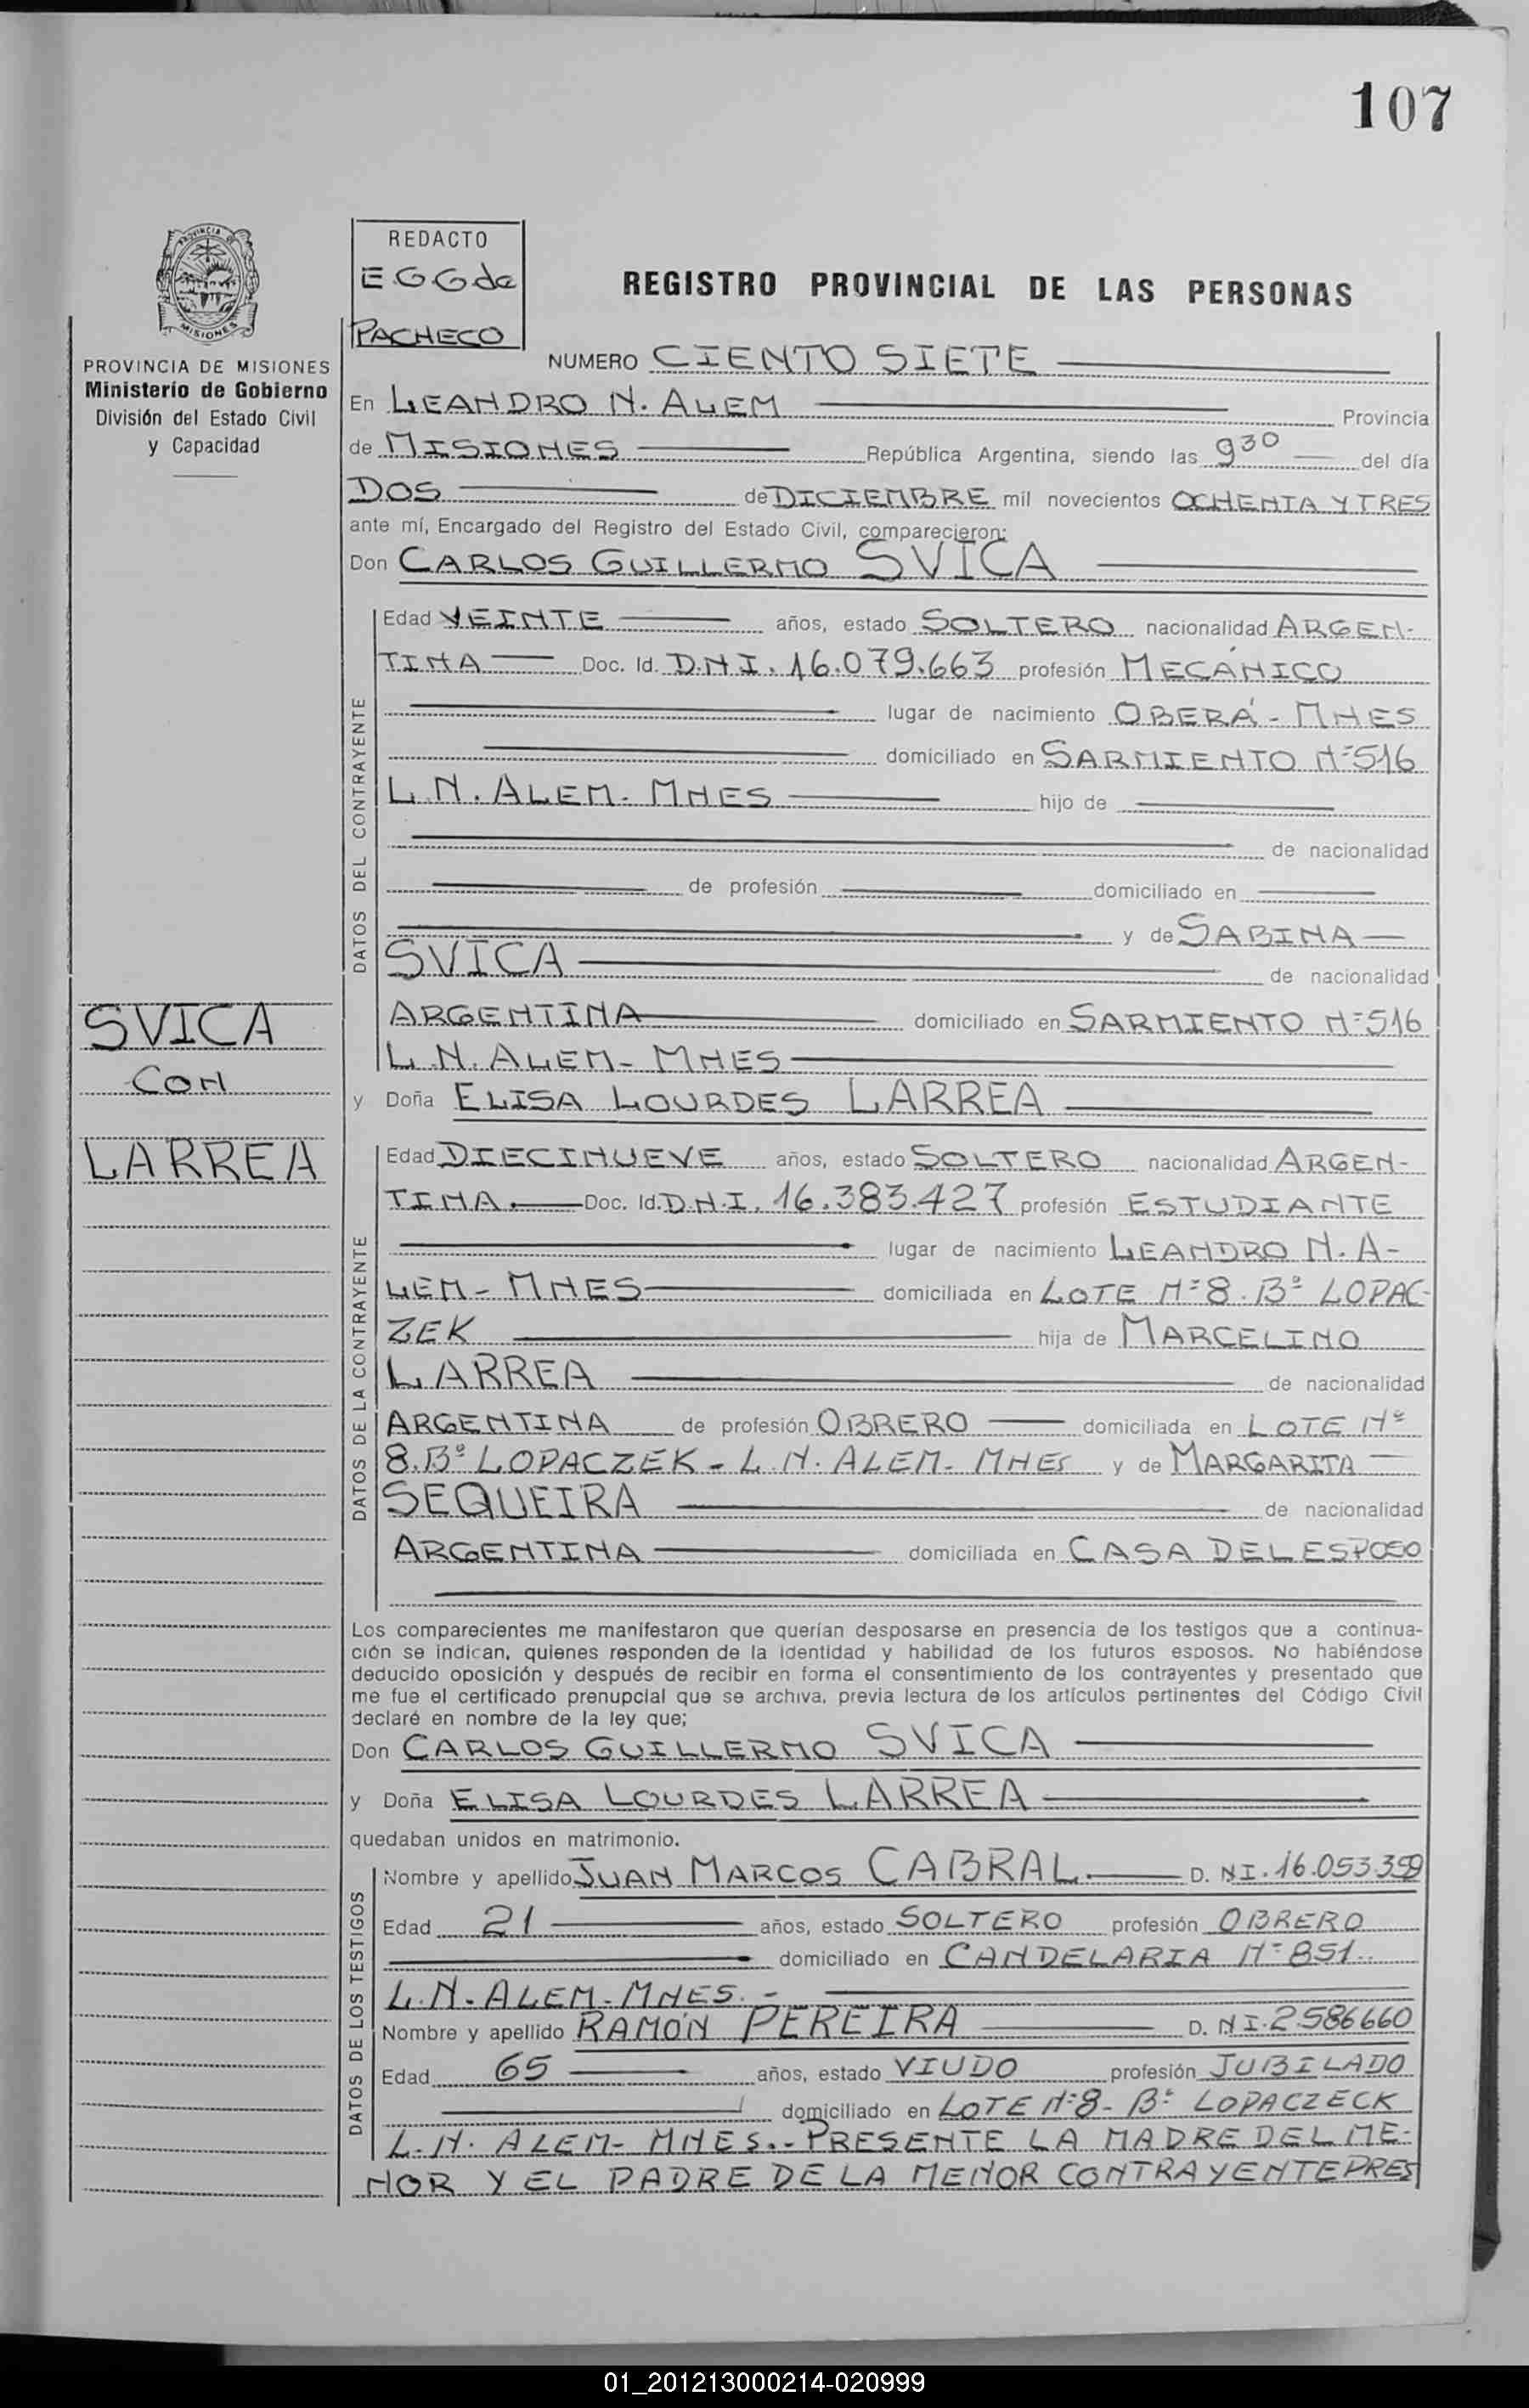 107
PROVINCIA DE
MISIONES
REDACTO
E.GGde
PACHECO
REGISTRO PROVINCIAL DE LAS PERSONAS
PROVINCIA DE MISIONES
Ministerio de Gobierno
División del Estado Civil
y Capacidad
NUMERO CIENTO SIETE
En LEANDRO N. ALEM Provincia
de MISIONES República Argentina, siendo las 930 del día
DOS de DICIEMBRE mil novecientos OCHENTA Y TRES
ante mí, Encargado del Registro del Estado Civil, comparecieron:
Don CARLOS GUILLERMO SVICA
DATOS DEL CONTRAYENTE
Edad VEINTE años, estado SOLTERO nacionalidad ARGEN-
TINA Doc. Id. D.N.I. 16.079.663 profesión MECÁNICO
lugar de nacimiento OBERÁ - MNES
domiciliado en SARMIENTO Nº516
L.N. ALEM - MNES hijo de
de nacionalidad
de profesión domiciliado en
y de SABINA
SVICA de nacionalidad
ARGENTINA domiciliado en SARMIENTO Nº516
L.N. ALEM - MNES
y Doña ELISA LOURDES LARREA
SVICA
CON
LARREA
DATOS DE LA CONTRAYENTE
Edad DIECINUEVE años, estado SOLTERO nacionalidad ARGEN-
TINA. Doc. Id. D.N.I. 16.383.427 profesión ESTUDIANTE
lugar de nacimiento LEANDRO N. A-
LEM - MNES domiciliada en LOTE Nº8. Bº LOPAC-
ZEK hija de MARCELINO
LARREA de nacionalidad
ARGENTINA de profesión OBRERO domiciliada en LOTE Nº
8. Bº LOPACZEK - L.N. ALEM - MNES y de MARGARITA
SEQUEIRA de nacionalidad
ARGENTINA domiciliada en CASA DEL ESPOSO
Los comparecientes me manifestaron que querían desposarse en presencia de los testigos que a continua-
ción se indican, quienes responden de la identidad y habilidad de los futuros esposos. No habiéndose
deducido oposición y después de recibir en forma el consentimiento de los contrayentes y presentado que
me fue el certificado prenupcial que se archiva, previa lectura de los artículos pertinentes del Código Civil
declaré en nombre de la ley que;
Don CARLOS GUILLERMO SVICA
y Doña ELISA LOURDES LARREA
quedaban unidos en matrimonio.
DATOS DE LOS TESTIGOS
Nombre y apellido JUAN MARCOS CABRAL D. NI. 16.053.359
Edad 21 años, estado SOLTERO profesión OBRERO
domiciliado en CANDELARIA Nº 851.
L.N. ALEM - MNES. -
Nombre y apellido RAMÓN PEREIRA D. NI. 2.586660
Edad 65 años, estado VIUDO profesión JUBILADO
domiciliado en LOTE Nº8 - Bº LOPACZECK
L.N. ALEM - MNES.- PRESENTE LA MADRE DEL ME-
NOR Y EL PADRE DE LA MENOR CONTRAYENTE PRES
01_201213000214-020999